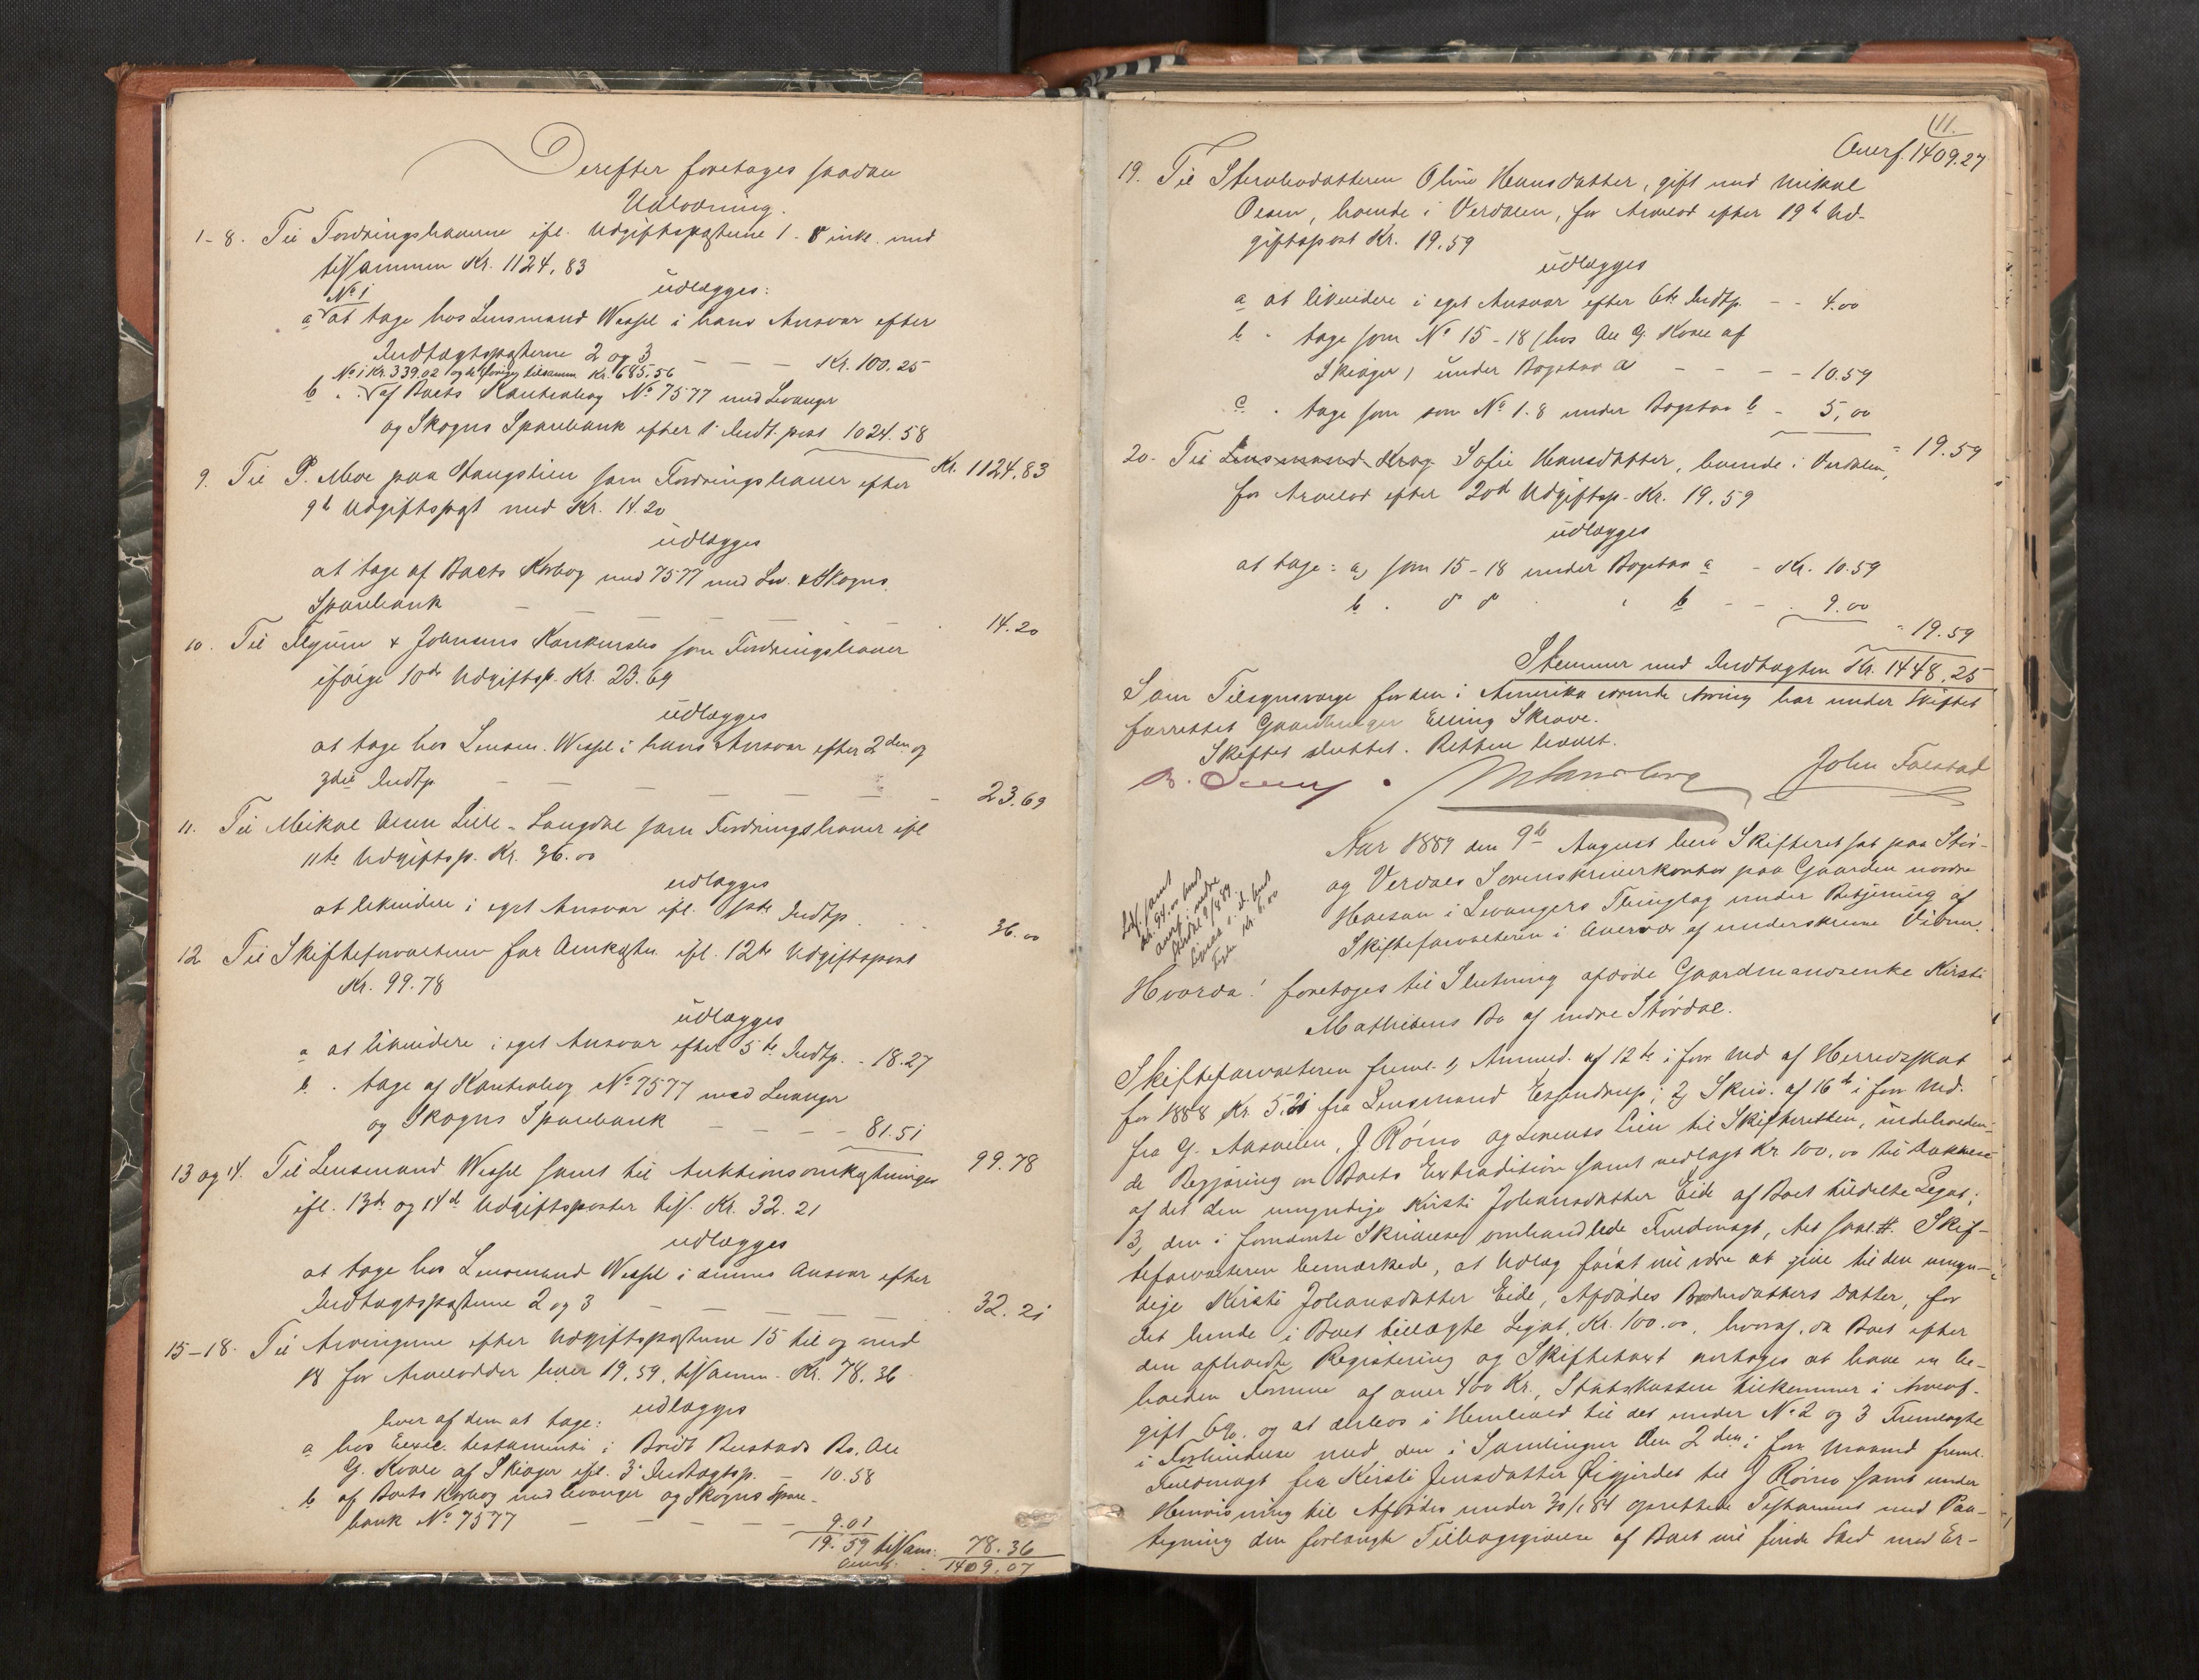 Derefter foretages saadan
Udlodning.
1-8. Til Fordringshaverne ifl. Udgiftsposterne 1-8 inkl. med
tilsammen Kr. 1124,83
udlægges:
No 1
a at tage hos Lensmand Wessel i hans Ansvar efter
Indtægtsposterne 2 og 3 — — — Kr. 100.25
No 1 Kr. 339.02 og de øvrige tilsamm. Kr. 685.56
b . . af Boets Kontrabog No 7577 med Levanger
og Skogns Sparebank efter 1 Indt. post 1024.58
Kr. 1124.83
9. Til P. Moe paa Haugslien som Fordringshaver efter
9de Udgiftspost med Kr. 14.20
udlægges
at tage af Boets Kbog med 7577 med Lev. & Skogns
Sparebank — — — 14.20
10. Til & Johnsens Konkursbo som Fordringshaver
ifølge 10de Udgiftsp. Kr. 23.69
udlægges
at tage hos Lensm. Wessel i hans Ansvar efter 2den og
3die Indtp. — — — — — 23.69
11. Til Mikal Olsen Lille-Langdal som Fordringshaver ifl
11te Udgiftsp. Kr. 36.00
udlægges
at likvidere i eget Ansvar ifl. Indtp. 36.00
12. Til Skifteforvalteren for Omkostn. ifl. 12te Udgiftspost
Kr. 99.78
udlægges
a at likvidere i eget Ansvar efter 5te Indtp. - 18.27
b. . tage af Kontrabog No 7577 med Levanger
og Skogns Sparebank — — — - 81.51
99.78
13 og 14. Til Lensmand Wessel samt til Auktionsomkostninger
ifl. 13de og 14de Udgiftsposter tils. Kr. 32.21
udlægges
at tage hos Lensmand Wessel i dennes Ansvar efter
Indtægtsposterne 2 og 3 — — — 32.21
15-18. Til Arvingerne efter Udgiftsposterne 15 til og med
18 for Arvelodder hver 19,59, tilsamm. Kr. 78.36
udlægges
hver af dem at tage:
a hos Exec. testamenti i Boidt Rustads Bo, Ole
G. Kvale af Skjøger ifl. 3 Indtægtsp. — 10.58
b af Boets Kbog med Levanger og Skogns Spare-
bank No 7577 — — — — — 9.01
19.59 tilsam. 78.36
Overf. 1409.07
11.
Overf. 1409.27
19. Til Sterbodatteren Oline Hansdatter, gift med Mikal
Olsen, boende i Verdalen, for Arvelod efter 19de Ud-
giftspost Kr. 19.59
udlægges
a at likvidere i eget Ansvar efter 6te Indtp. - - 4.00
b . tage som No 15-18 (hos Ole G. Kvale af
Skjøger) under Bogstav a — — - 10.59
c . tage som som No 1-8 under Bogstav b - 5,00
- 19.59
20. Til Lensmand Krog Sofie Hansdatter, boende i Verdalen,
for Arvelod efter 20de Udgiftsp. Kr. 19.59
udlægges
at tage: a, som 15-18 under Bogstav a - Kr. 10.59
b . d d . . b - - . 9.00
- 19.59
Stemmer med Indtægten Kr. 1448,25
Som Tilsynsværge for den i Amerika værende Arving har under Skiftet
forrettet Gaardbruger Elling Skrove.
Skiftet sluttet. Retten hævet.
John Folstad
Aar 1889 den 9de August blev Skifteret sat paa Stør-
og Verdals Sorenskriverkontor paa Gaarden nordre
Halsan i Levangers Thinglag under Betjening af
Skifteforvalteren i Overvær af underskrevne Vidner.
Hvorda: foretoges til Slutning afdøde Gaardmandsenke Kirsti
Mathisens Bo af indre Størdal.
Skifteforvalteren freml. 1, Anmeld. af 12te i forr. Md. af Herredsskat
for 1888 Kr. 5.21 fra Lensmand Esjendrup; 2, Skriv. af 16de i forr. Md.
fra G. Aasvelen, J. Rømo og Lorents Lien til Skifteretten, indeholden-
de Begjæring om Boets Extradition samt vedlagt Kr 100.00 til Dækkelse
af det den umyndige Kirsti Johansdatter Eide af Boet tildelte Legat;
3, den i fornævnte Skrivelse omhandlede Fuldmagt, Skif-
teforvalteren bemærkede, at Udlæg først vil være at give til den umyn-
dige Kirsti Johansdatter Eide, Afdødes Broderdatters Datter, for
det hende i Boet tillagte Legat, Kr. 100.00, hvoraf, da Boet efter
den afholdte Registrering og Skiftetaxt antages at have en be-
holden Formue af over 400 Kr., Statskassen tilkommer i Arveaf-
gift 6%. og at derhos i Henhold til det under No 2 og 3 Fremlagte
i Forbindelse med den i Samlingen den 2den i forr. Maaned freml.
Fuldmagt fra Kirsti Jensdatter Øigjerdet til J Rømo samt under
Henvisning til Afdødes under 30/1 84 oprettede Testament med Paa-
tegning den forlangte Tilbagegivelse af Boet vil finde Sted med Er-